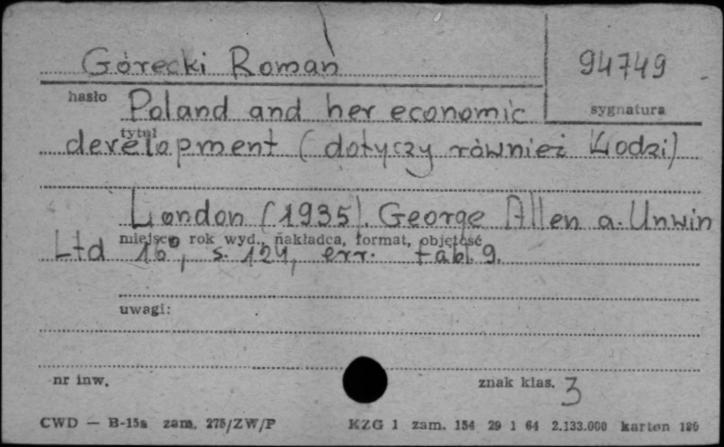 Górecki Roman
94749
hasło
sygnatura
Poland and her economic
tytuł
development (dotyczy również Łodzi)
London (1935). George Allen a. Unwin
miejsce rok wyd., nakładca, format, objętość
Ltd 16°, s. 124, err. tabl. 9.
uwagi:
nr inw.
znak klas. 3
CWD — B-15a zam. 275/ZW/P
KZG 1 zam. 154 29 1 64 2.133.000 karton 180